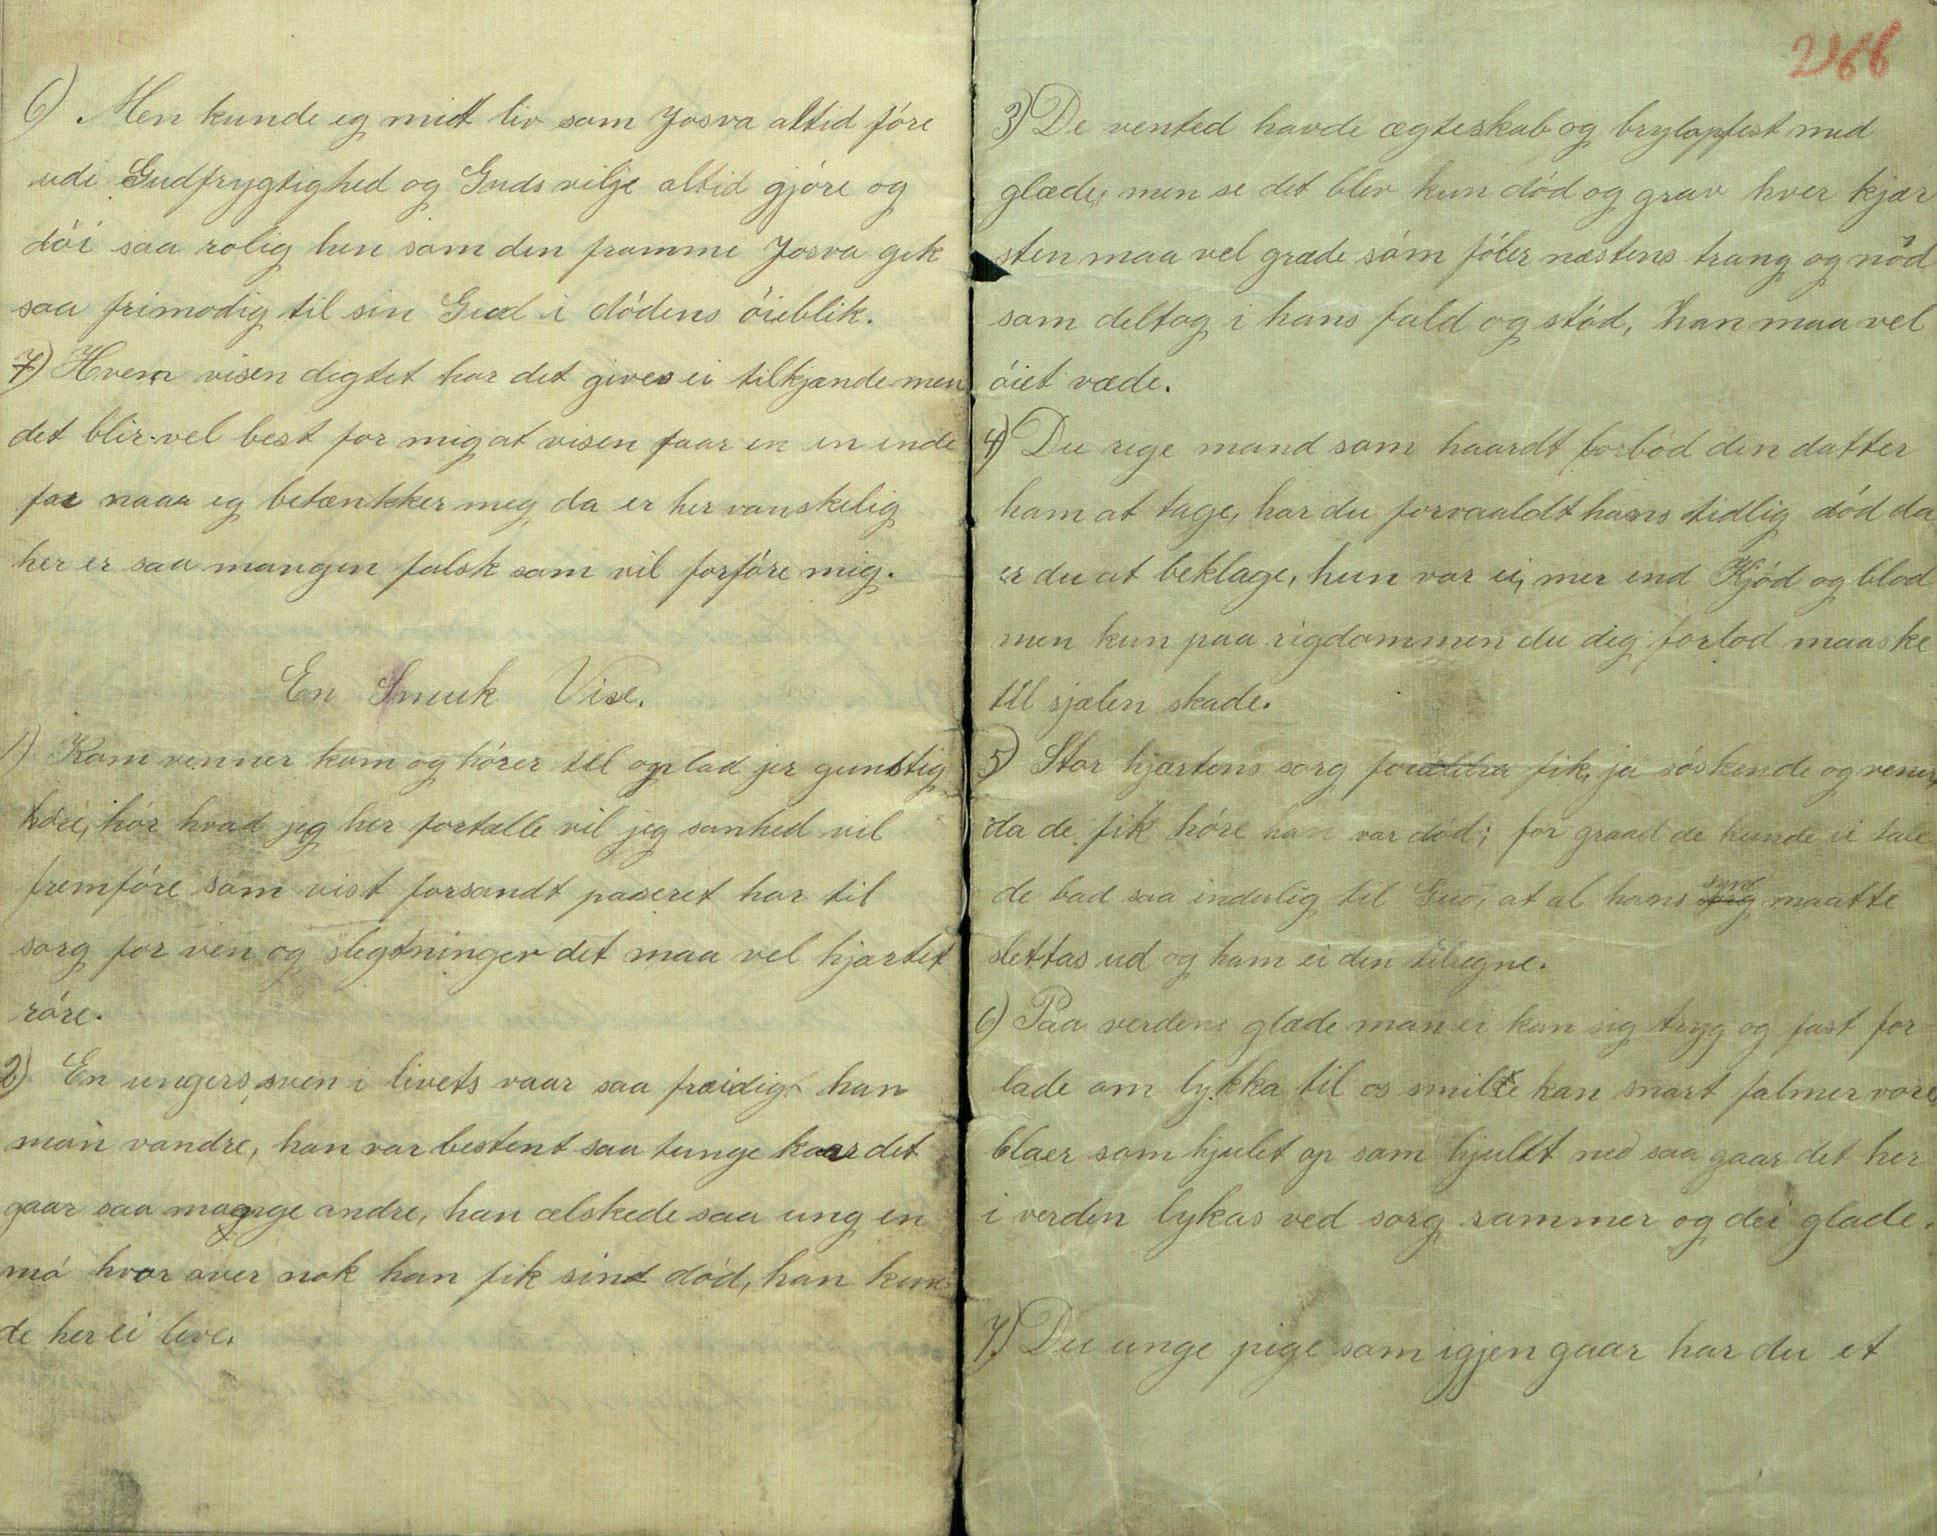 6) Men kunde eg mitt liv som Josva altid före
udi Gudfrygtighed og Guds vilje altid gjöre og
döi saa rolig hen som den fromme Josva gik
saa frimodig til sin Gud i dödens öieblik.
7) Hvem visen digtet har det gives ei tilkjænde men
det blir vel best for mig at visen faar en en ende
for naar eg betænkker meg da er her vanskelig
her er saa mangen falsk som vil forföre mig.
En Smuk Vise.
1) Kom venner kom og hörer til oplad jer gunstig
höre, hör hvad jeg her fortælle vil jeg sanhed vil
fremföre som vist forsandt paseret har til
sorg for ven og slegtninger det maa vel hjærtet
röre.
2) En ungersven i livets vaar saa fræidig han
mon vandre, han var bestent saa tunge kaar det
gaar saa mange andre, han ælskede saa ung en
mö hvor over nok han fik sin död, han kun
de her ei leve.
266
3) De vented havde ægteskab og brylopfest med
glæde, men se det blev kun död og grav hver kjær
sten maa vel græde som föler næstens trang og nöd
som deltog i hans fald og stöd, han maa vel
öiet væde.
4) Du rige mand som haardt forböd den datter
ham at tage, har du forvaaldt hans tidlig död da
er du at beklage, hun var ei mer end Kjöd og blod
men kun paa rigdommen du dig forlod maaske
til sjælen skade.
5) Stor hjærtens sorg forældra fik, ja söskende og vener,
da de fik höre han var död; for graad de kunde ei tale
de bad saa inderlig til Gud, at al hans synd maatte
slettas ud og ham ei den tilregne.
6) Paa verdens glæde man ei kan sig tryg og fast for
lade om lykka til os smile kan snart falmer vore
blaer som hjulet op som hjulet ned saa gaar det her
i verden lykas ved sorg rammer og dei glade.
7) Du unge pige som igjen gaar har du et